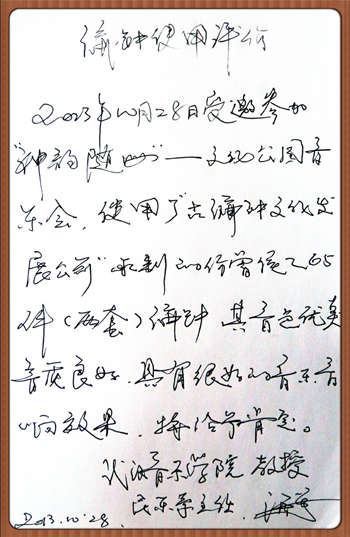 编钟使用评价
2013年10月28日受邀参加
"神韵随州"—文化公园音
乐会，使用了"古编钟文化发
展公司"承制的仿曾侯乙65
件（两套）编钟 其音色优美
音质良好，具有很好的音乐音
响效果，特给予肯定。
武汉音乐学院 教授
民乐系主任
2013.10.28.